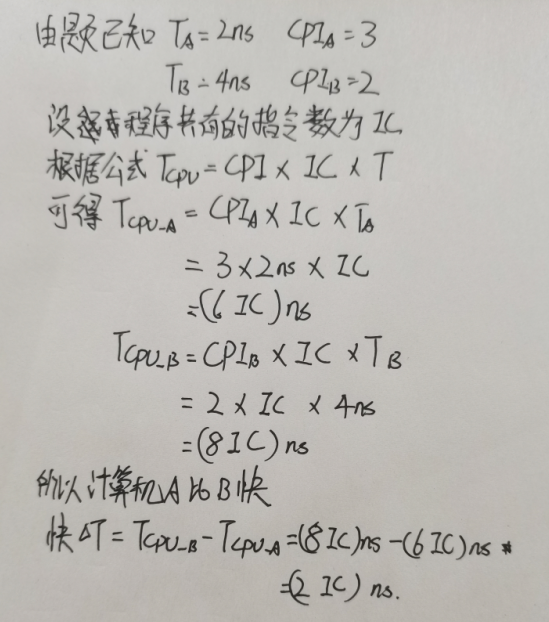 由题已知 T_A=2ns CPI_A=3
T_B=4ns CPI_B=2
设这程序共有的指令数为 IC
根据公式 T_CPU=CPI×IC×T
可得 T_CPU_A=CPI_A×IC×T_A
=3×2ns×IC
=(6 IC)ns
T_CPU_B=CPI_B×IC×T_B
=2×IC×4ns
=(8IC)ns
所以计算机A比B快
快ΔT=T_CPU_B-T_CPU_A=(8IC)ns-(6IC)ns
=(2 IC) ns.